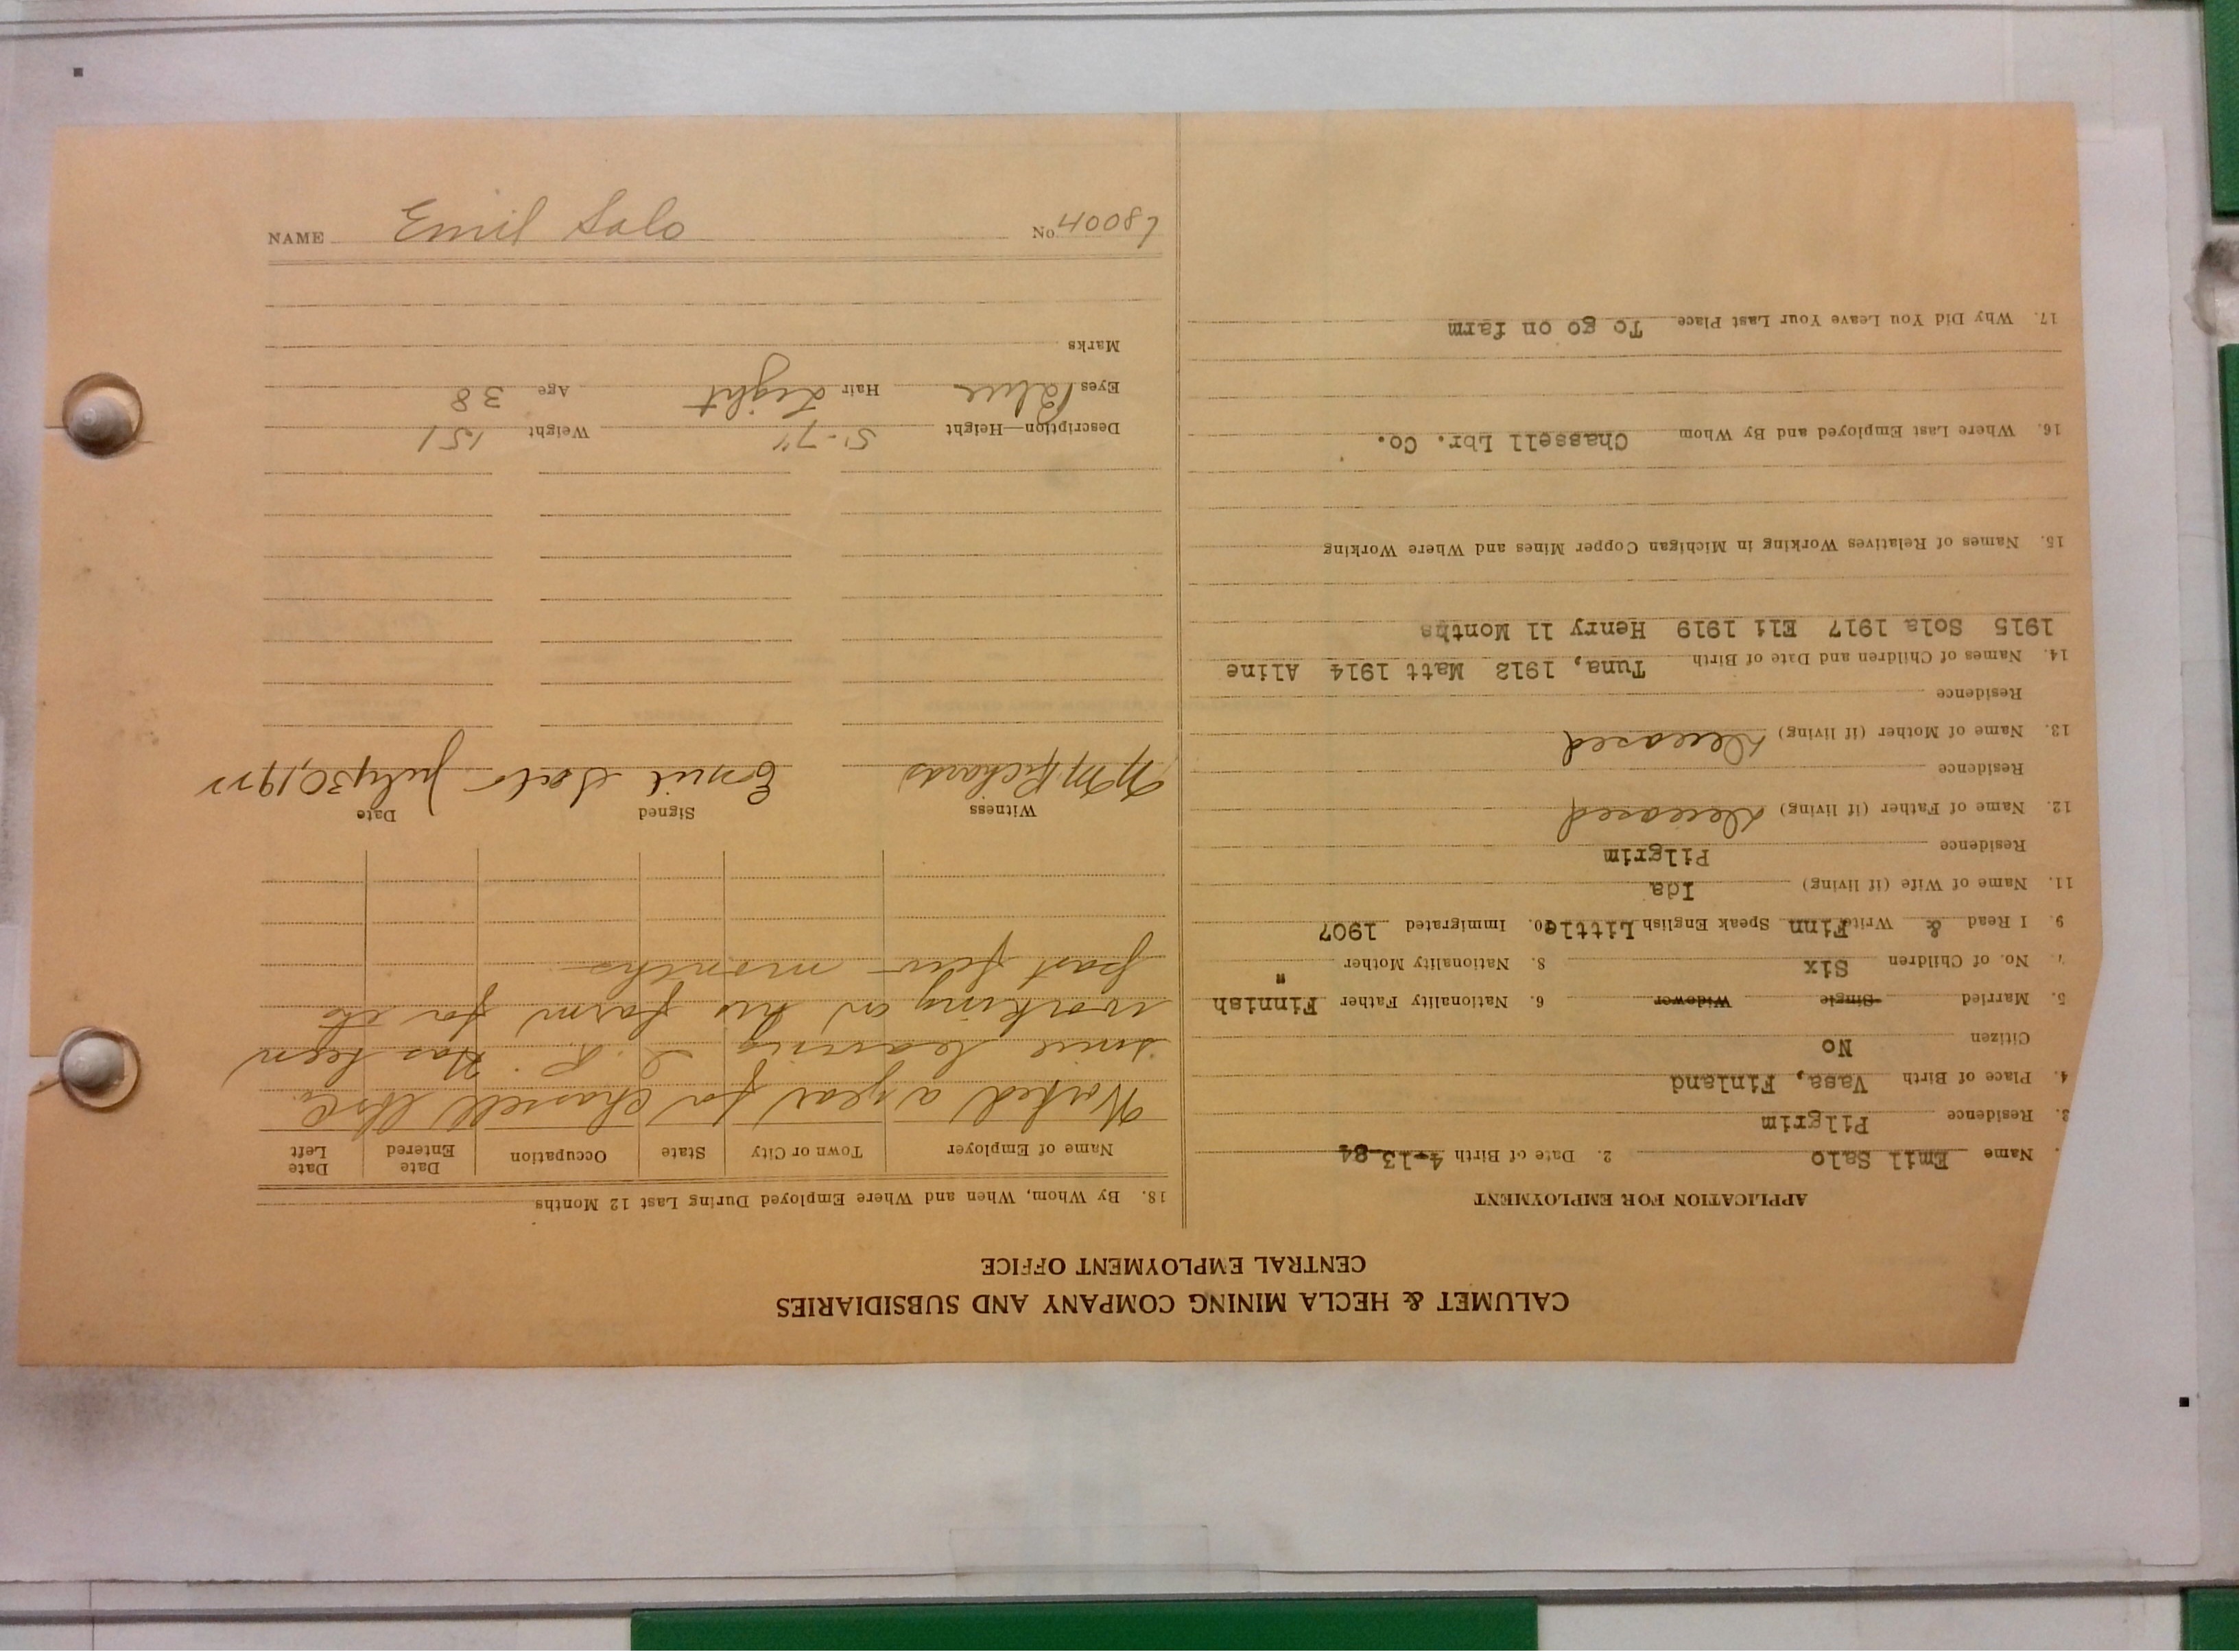 CALUMET & HECLA MINING COMPANY AND SUBSIDIARIES
CENTRAL EMPLOYMENT OFFICE
APPLICATION FOR EMPLOYMENT
Name Emil Salo 2. Date of Birth 4-13-84
3. Residence Pilgrim
4. Place of Birth Vasa, Finland
Citizen No
5. Married Single Widower 6. Nationality Father Finnish
7. No. of Children Six 8. Nationality Mother "
9. I Read & Write Finn Speak English Little 0. Immigrated 1907
11. Name of Wife (if living) Ida
Residence Pilgrim
12. Name of Father (if living) Deceased
Residence
13. Name of Mother (if living) Deceased
Residence
14. Names of Children and Date of Birth Tuna, 1912 Matt 1914 Aline
1915 Sola 1917 Eli 1919 Henry 11 Months
15. Names of Relatives Working in Michigan Copper Mines and Where Working
16. Where Last Employed and By Whom Chassell Lbr. Co.
17. Why Did You Leave Your Last Place To go on farm
18. By Whom, When and Where Employed During Last 12 Months
Name of Employer Town or City State Occupation Date Entered Date Left
Worked a year for Chassell Co.
since leaving Has been
working on his farm for the
past few months
Witness Signed Date
Richards Emil Salo July 30, 1922
Description—Height 5'-7" Weight 151
Eyes Blue Hair Light Age 38
Marks
NAME Emil Salo No 40087